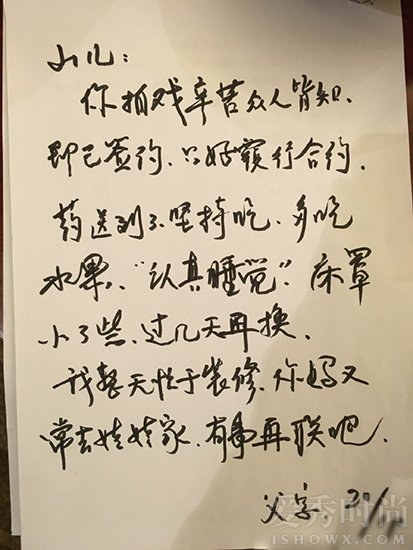 山儿：
你拍戏辛苦众人皆知、
即已签约、只好履行合约、
药送到了、坚持吃、多吃
水果、“认真睡觉”、床罩
小了些、过几天再换、
我整天忙于装修、你妈又
常去娃娃家、有事再联吧、
父字、20/1
爱秀时尚
ISHOWX.COM